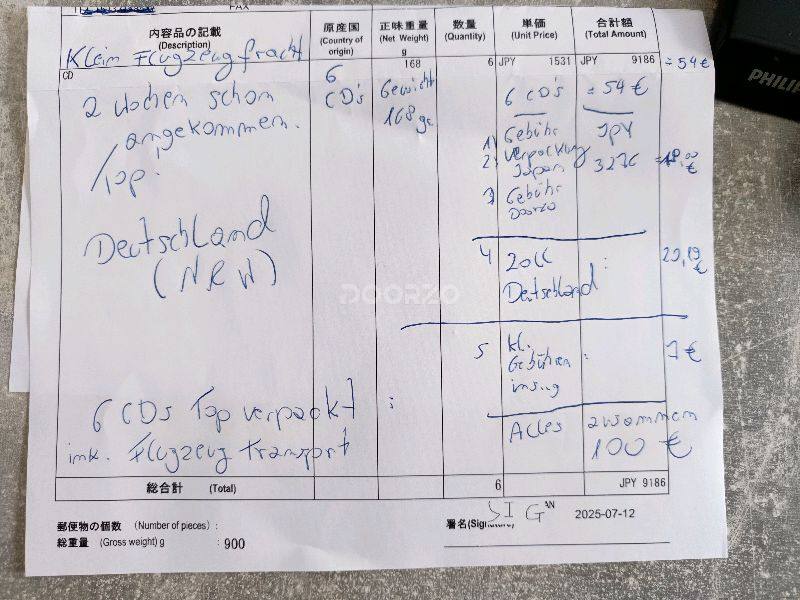 FAX
内容品の記載 (Description)
原産国 (Country of origin)
正味重量 (Net Weight) g
数量 (Quantity)
単価 (Unit Price)
合計額 (Total Amount)
Klein Flugzeugfracht
CD
168
6 JPY 1531 JPY 9186 = 54 €
2 Wochen schon
angekommen.
Top!
Deutschland
(NRW)
6
CD's
Gewicht
168 gr
6 CD's = 54 €
1) Gebühr JPY
2) Verpackung 3276 = 18,00 €
Japan
3 Gebühr
Doorzo
4 Zoll : 
Deutschland
DOORZO
5 kl. Gebühren : 7 €
6 CDs Top verpackt :
ink. Flugzeug transport
Alles zusammen
100 €
総合計 (Total) 6 JPY 9186
郵便物の個数 (Number of pieces) :
総重量 (Gross weight) g : 900
署名(Signature) 2025-07-12